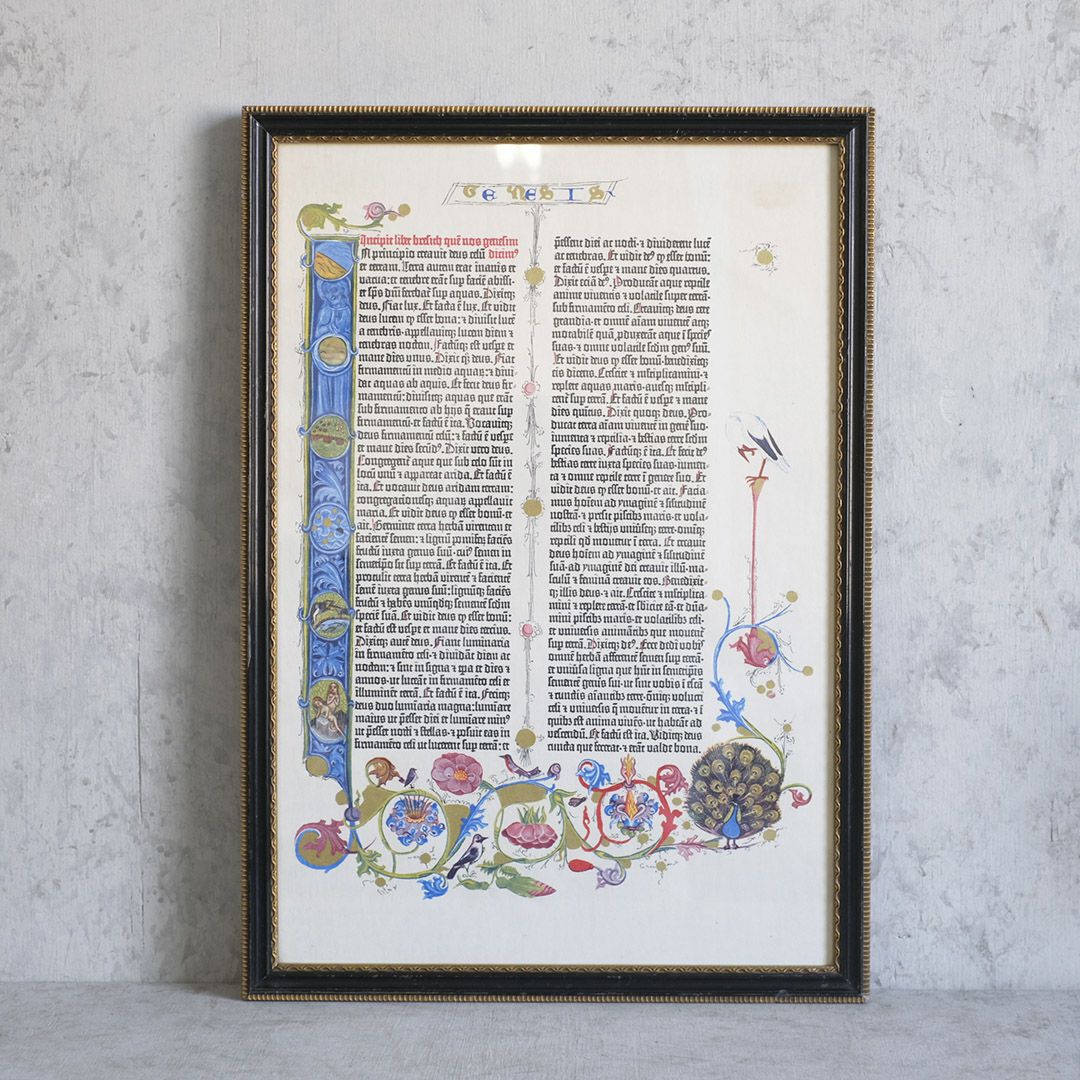 GENESIS
Incipit liber bresich quē nos genesim
dicimꝰ
In principio creavit deus celū
et terram. Terra autem erat inanis et
vacua: et tenebre erāt sup faciē abissi:
et spūs dn̄i ferebat̄ sup aquas. Dixitqꝫ
deus. Fiat lux. Et facta ē lux. Et vidit
deus lucem ꝙ esset bona: ⁊ divisit lucē
a tenebris·appellavitqꝫ lucem diem ⁊
tenebras noctem. Factūqꝫ est vespe et
mane dies unus. Dixit qꝫ deus. Fiat
firmamentū in medio aquaꝝ: ⁊ divi-
dat aquas ab aquis. Et fecit deus fir-
mamentū: divisitqꝫ aquas que erāt
sub firmamento ab hijs q̄ erant sup
firmamentū·et factū ē ita. Vocavitqꝫ
deus firmamentū celū: ⁊ factū ē vespe
et mane dies secūdꝰ. Dixit vero deus.
Congregent̄ aque que sub celo sūt in
locū unū ⁊ appareat arida. Et factū ē
ita. Et vocavit deus aridam terram:
congregacionesqꝫ aquaꝝ appellavit
maria. Et vidit deus ꝙ esset bonū·et
ait. Germinet terra herbā virentem et
facientē semen: ⁊ lignū pomifeꝝ faciēs
fructū iuxta genus suū·cuiꝰ semen in
semetip̄o sit sup terrā. Et factū ē ita. Et
protulit terra herbā virentē ⁊ facientē
semē iuxta genus suū: lignūqꝫ faciēs
fructū ⁊ habēs unūqdqꝫ sementē scdm
speciē suā. Et vidit deus ꝙ esset bonū:
et factū est vespe et mane dies tercius.
Dixitqꝫ autē deus. Fiant luminaria
in firmamēto celi·⁊ dividāt diem ac
noctem: ⁊ sint in signa ⁊ tp̄a et dies ⁊
annos·ut luceāt in firmamēto celi et
illuminēt terrā. Et factū ē ita. Fecitqꝫ
deus duo luminaria magna: lumīare
maius ut p̄esset diei et lumīare minꝰ
ut p̄esset nocti ⁊ stellas·⁊ posuit eas in
firmamēto celi ut lucerent sup terrā: et
p̄essent diei ac nocti·⁊ dividerent lucē
ac tenebras. Et vidit dꝰ ꝙ esset bonū:
et factū ē vespe ⁊ mane dies quartus.
Dixit eciā dꝰ. Producāt aque reptile
anime viventis ⁊ volatile super terrā·
sub firmamēto celi. Creavitqꝫ deus cete
grandia·et omnē aīam viventē atqꝫ
motabilē quā pduxerāt aque ī species
suas·⁊ omne volatile scdm genꝰ suū.
Et vidit deus ꝙ esset bonū·benedixitqꝫ
eis dicens. Crescite ⁊ mltiplicamini·⁊
replete aquas maris·avesqꝫ mltipli-
cent̄ sup terrā. Et factū ē vespe ⁊ mane
dies quitus. Dixit quoqꝫ deus. Pro-
ducat terra aīam viventē in genē suo·
iumenta ⁊ reptilia·⁊ bestias terre scdm
species suas. Factūqꝫ ē ita. Et fecit dꝰ
bestias terre iuxta species suas·iumen-
ta ⁊ omne reptile terre ī genere suo. Et
vidit deus ꝙ esset bonū·et ait. Facia-
mus hoīem ad ymaginē ⁊ silitudinē
nostrā·⁊ presit piscibꝫ maris·et vola-
tilibꝫ celi ⁊ bestijs univseqꝫ terre·omniqꝫ
reptili qd movetur ī terra. Et creavit
deus hoīem ad ymaginē ⁊ silitudinē
suā·ad ymaginē dei creavit illū·ma-
sculū ⁊ feminā creavit eos. Benedixit-
qꝫ illis deus·⁊ ait. Crescite ⁊ mltiplica-
mini ⁊ replete terrā·et sbicite eā·⁊ dn̄a-
mini piscibꝫ maris·et volatilibꝫ celi·
et universis animātibꝫ que movent̄
sup terrā. Dixitqꝫ dꝰ. Ecce dedi vobꝭ
omnē herbā afferentē semen sup terrā·
et univsa ligna que hn̄t in semetip̄is
sementē genis sui·ut sint vobis ī escā
⁊ cunctis aīantibꝫ terre·oīniqꝫ volucri
celi ⁊ universis q̄ movent̄ in terra·⁊ ī
quibꝫ est anima vivēs·ut habeāt ad
vescendū. Et factū est ita. Viditqꝫ deus
cuncta que fecerat·⁊ erāt valde bona.